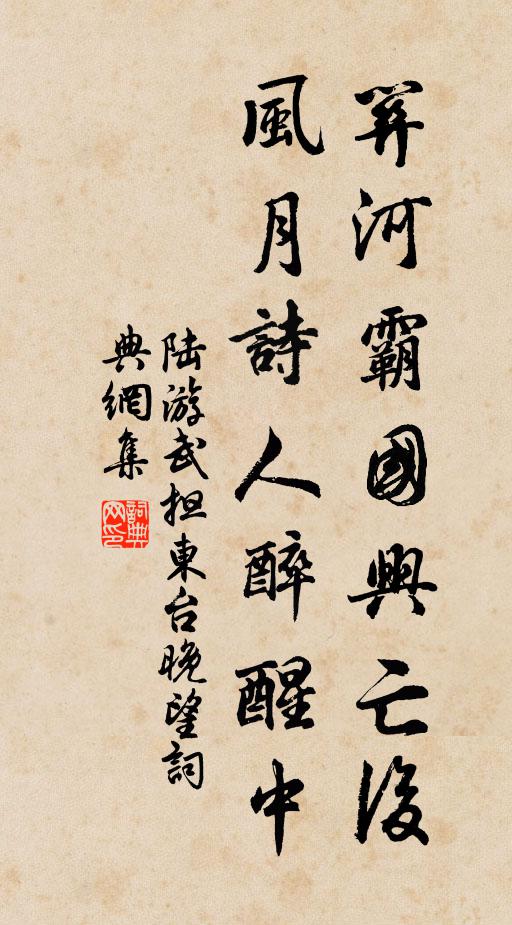 關河霸國興亡後
風月詩人醉醒中
陸游武担東台晚望詞
典網集
詞典网印